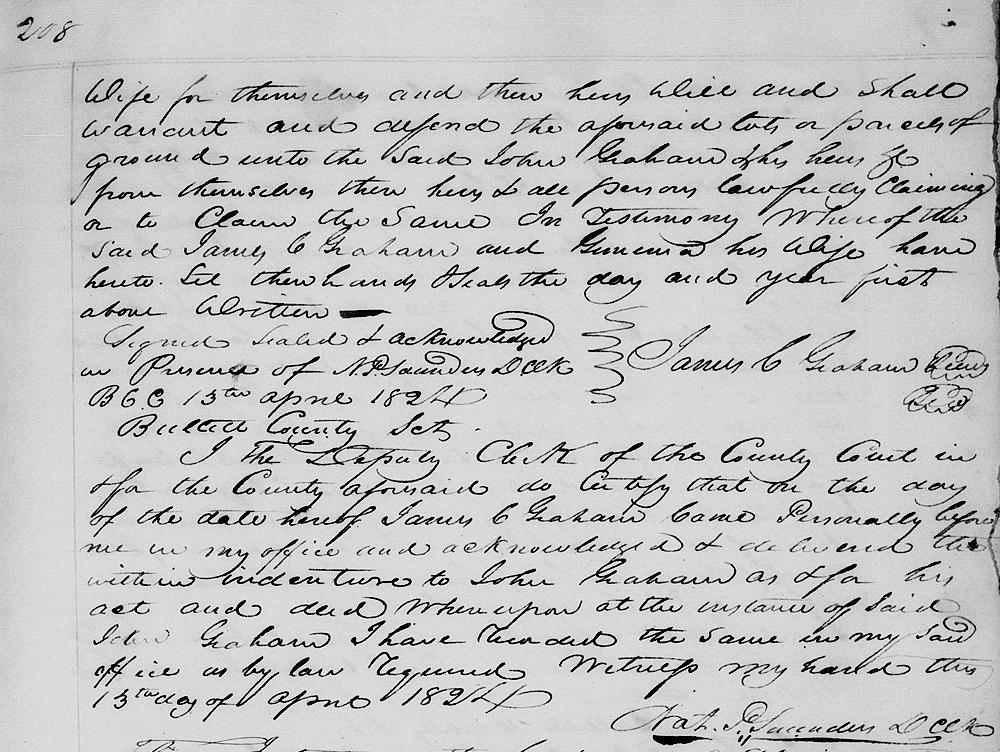 208
Wife for themselves and their heirs Will and Shall
warrant and defend the aforsaid lots or parcels of
ground unto the Said John Graham & his heirs &c
from themselves their heirs & all persons lawfully Claiming
or to Claim the Same In Testimony Whereof the
Said James C Graham and his Wife have
hereto Set their hands & Seals the day and year first
above Written
Signed Sealed & acknowledged
in Presence of N. P. Saunders D Clk
B C C 13th april 1824
James C Graham Seal
Seal
Bullitt County Sct.
I the Deputy Clerk of the County Court in
& for the County aforsaid do Certify that on the day
of the date hereof James C Graham Came Personally before
me in my office and acknowledged & delivered the
within indenture to John Graham as & for his
act and deed Whereupon at the instance of Said
John Graham I have recorded the Same in my Said
office as by law required Witness my hand this
13th day of april 1824
Nat. P. Saunders D Clk